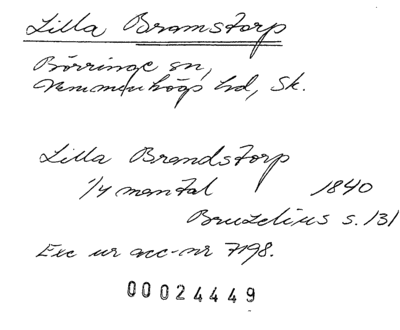 Lilla Bramstorp
Börringe sn,
Vemmenhögs hd, Sk.
Lilla Brandstorp
1/4 mantal 1840
Bruzelius s. 131
Exc ur acc-nr 7198.
00024449